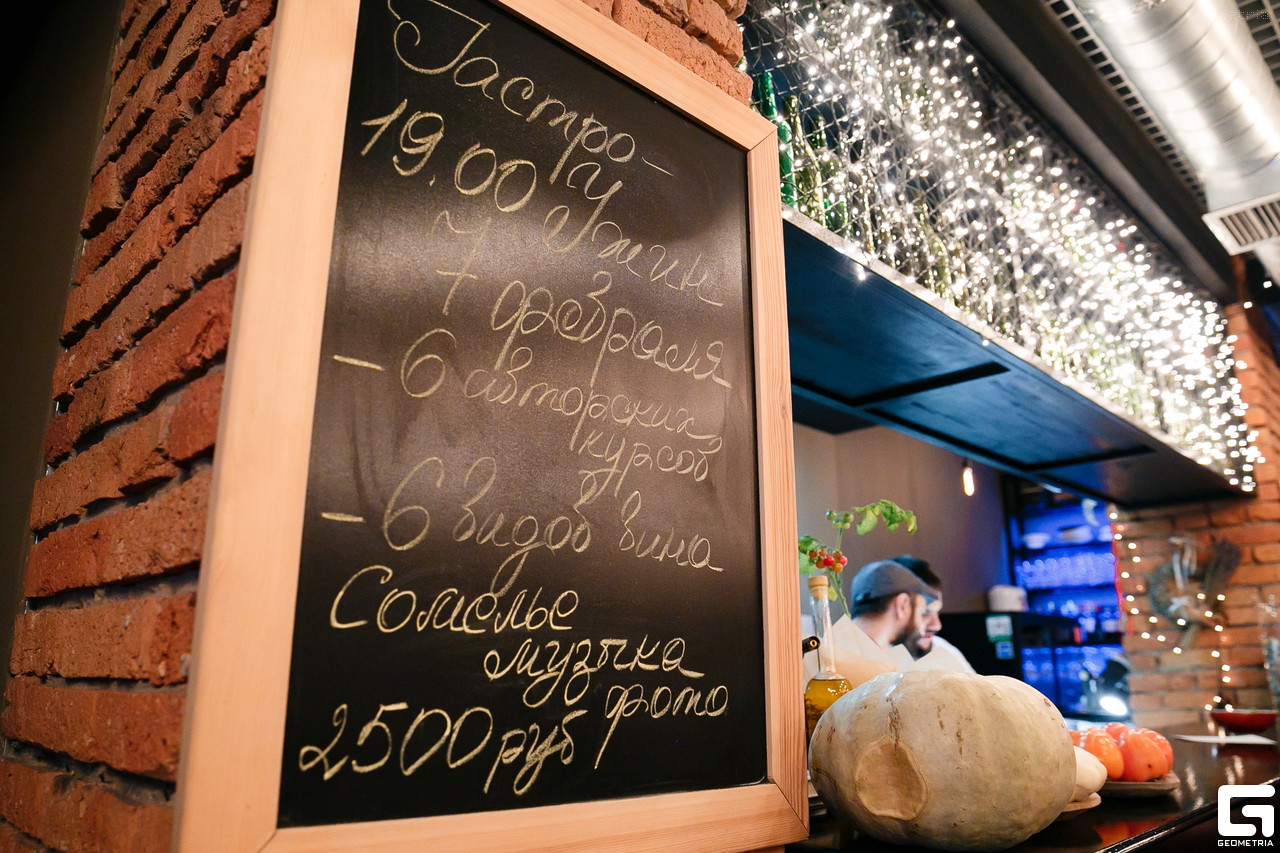 Гастро-
19.00 Ужин
7 февраля
- 6 авторских
курсов
- 6 видов вина
Сомелье
музыка
2500 руб фото
GEOMETRIA